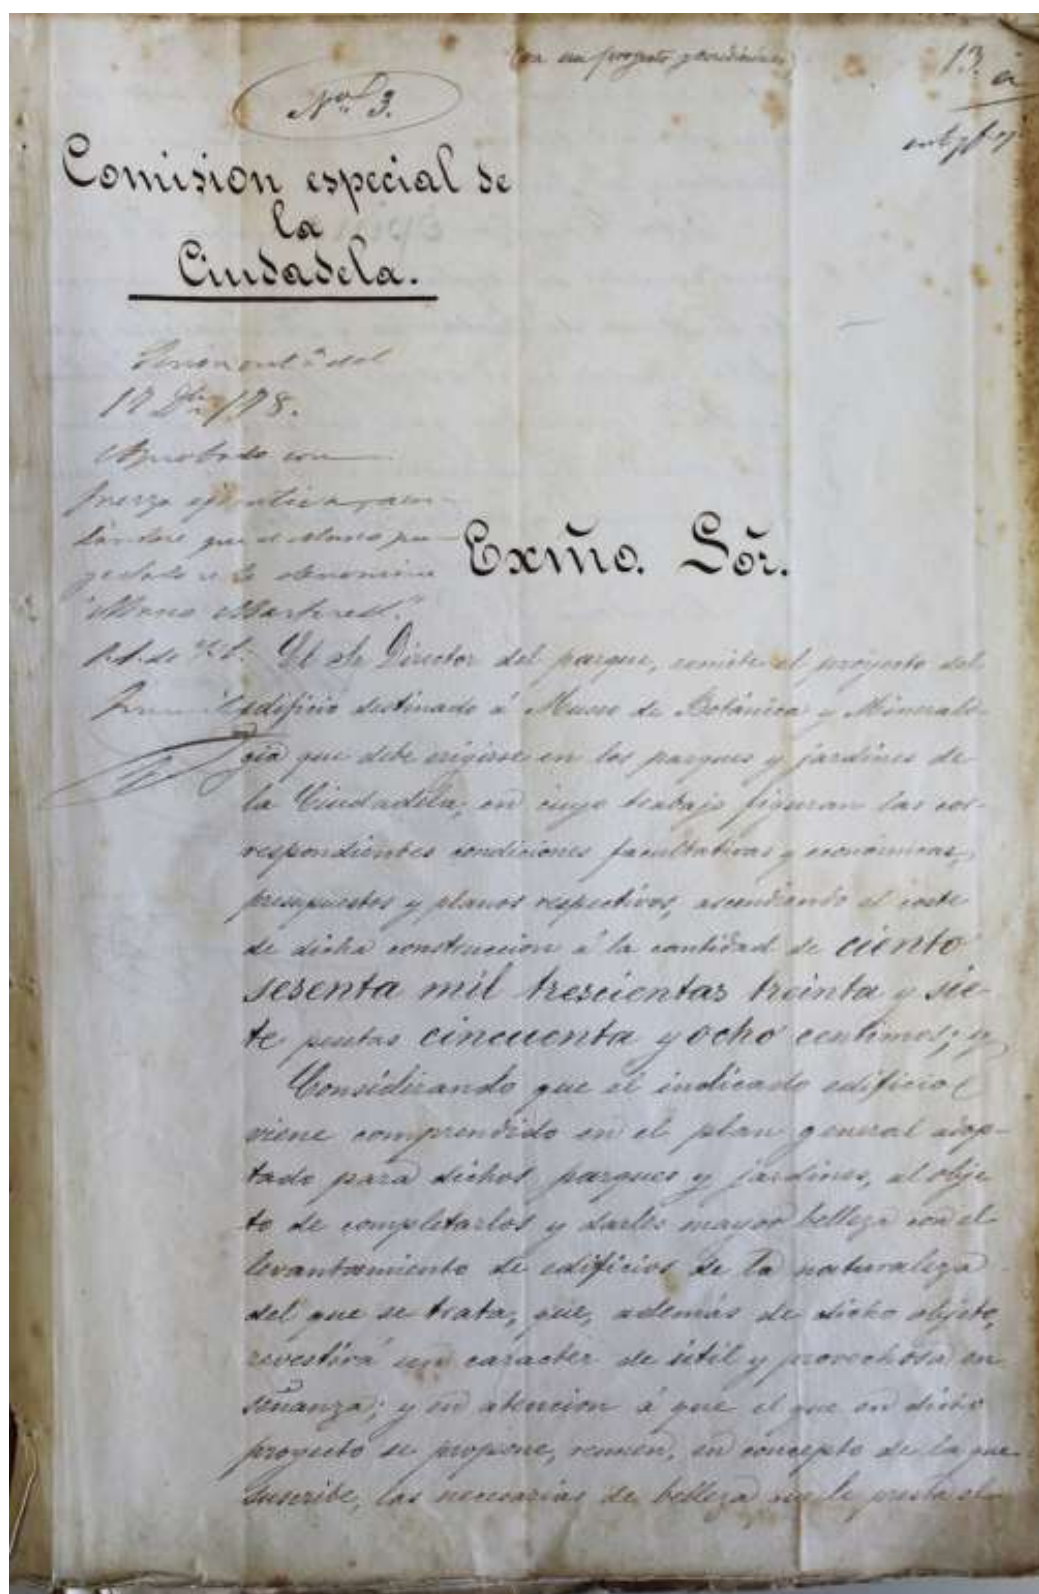 (va un proyecto
13.
Nº 3.
Comision especial de
la
Ciudadela.
Sesion del
17 Dbre 178.
Aprobado con
fuerza ejecutiva,
que el Museo
se le denomine
"Museo Martorell."
Exmo. Sor.
El Sr Director del parque, remite el proyecto del
edificio destinado á Museo de Botánica y Mineralo-
gia que debe erigirse en los parques y jardines de
la Ciudadela, en cuyo trabajo figuran las cor-
respondientes condiciones facultativas y económicas,
presupuestos y planos respectivos, ascendiendo el coste
de dicha construccion á la cantidad de ciento
sesenta mil trescientas treinta y sie-
te pesetas cincuenta y ocho centimos; y
Considerando que el indicado edificio
viene comprendido en el plan general adop-
tado para dichos parques y jardines, al obje-
to de completarlos y darles mayor belleza con el
levantamiento de edificios de la naturaleza
del que se trata, que, además de dicho objeto,
revestirá un caracter de útil y provechosa en
señanza; y en atencion á que el que en dicho
proyecto se propone, reunen, en concepto de la que
suscribe, las necesarias de belleza